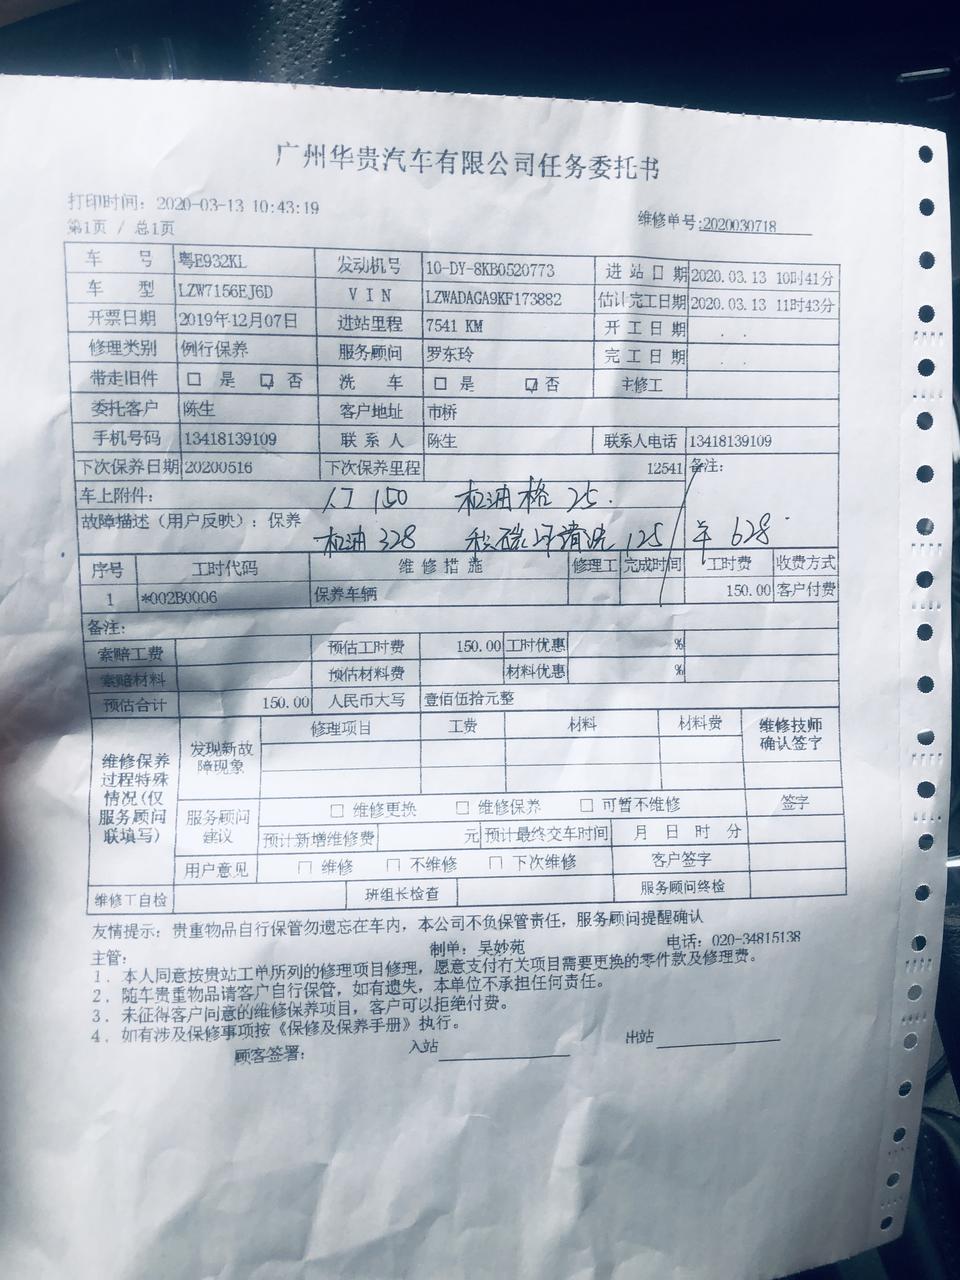 广州华贵汽车有限公司任务委托书
打印时间：2020-03-13 10:43:19
第1页 / 总1页
维修单号:2020030718
车 号 粤E932KL 发动机号 10-DY-8KB0520773 进站日期 2020.03.13 10时41分
车 型 LZW7156EJ6D VIN LZWADAGA9KF173882 估计完工日期 2020.03.13 11时43分
开票日期 2019年12月07日 进站里程 7541 KM 开工日期 . .
修理类别 例行保养 服务顾问 罗东玲 完工日期 . .
带走旧件 □ 是 ☑ 否 洗 车 □ 是 ☑ 否 主修工
委托客户 陈生 客户地址 市桥
手机号码 13418139109 联系人 陈生 联系人电话 13418139109
下次保养日期 20200516 下次保养里程 12541 备注:
车上附件: 人工 150 机油格 25.
故障描述（用户反映）: 保养
机油 328 125 628
序号 工时代码 维修措施 修理工 完成时间 工时费 收费方式
1 *002B0006 保养车辆 150.00 客户付费
备注:
索赔工费 预估工时费 150.00 工时优惠 %
索赔材料 预估材料费 材料优惠 %
预估合计 150.00 人民币大写 壹佰伍拾元整
维修保养过程特殊情况(仅服务顾问联填写) 发现新故障现象 修理项目 工费 材料 材料费 维修技师确认签字
服务顾问建议 □ 维修更换 □ 维修保养 □ 可暂不维修 签字
预计新增维修费 元 预计最终交车时间 月 日 时 分
用户意见 □ 维修 □ 不维修 □ 下次维修 客户签字
维修工自检 班组长检查 服务顾问终检
友情提示: 贵重物品自行保管勿遗忘在车内，本公司不负保管责任，服务顾问提醒确认
主管: 制单: 吴妙苑 电话: 020-34815138
1．本人同意按贵站工单所列的修理项目修理，愿意支付有关项目需要更换的零件款及修理费。
2．随车贵重物品请客户自行保管，如有遗失，本单位不承担任何责任。
3．未征得客户同意的维修保养项目，客户可以拒绝付费。
4．如有涉及保修事项按《保修及保养手册》执行。
顾客签署: 入站 出站